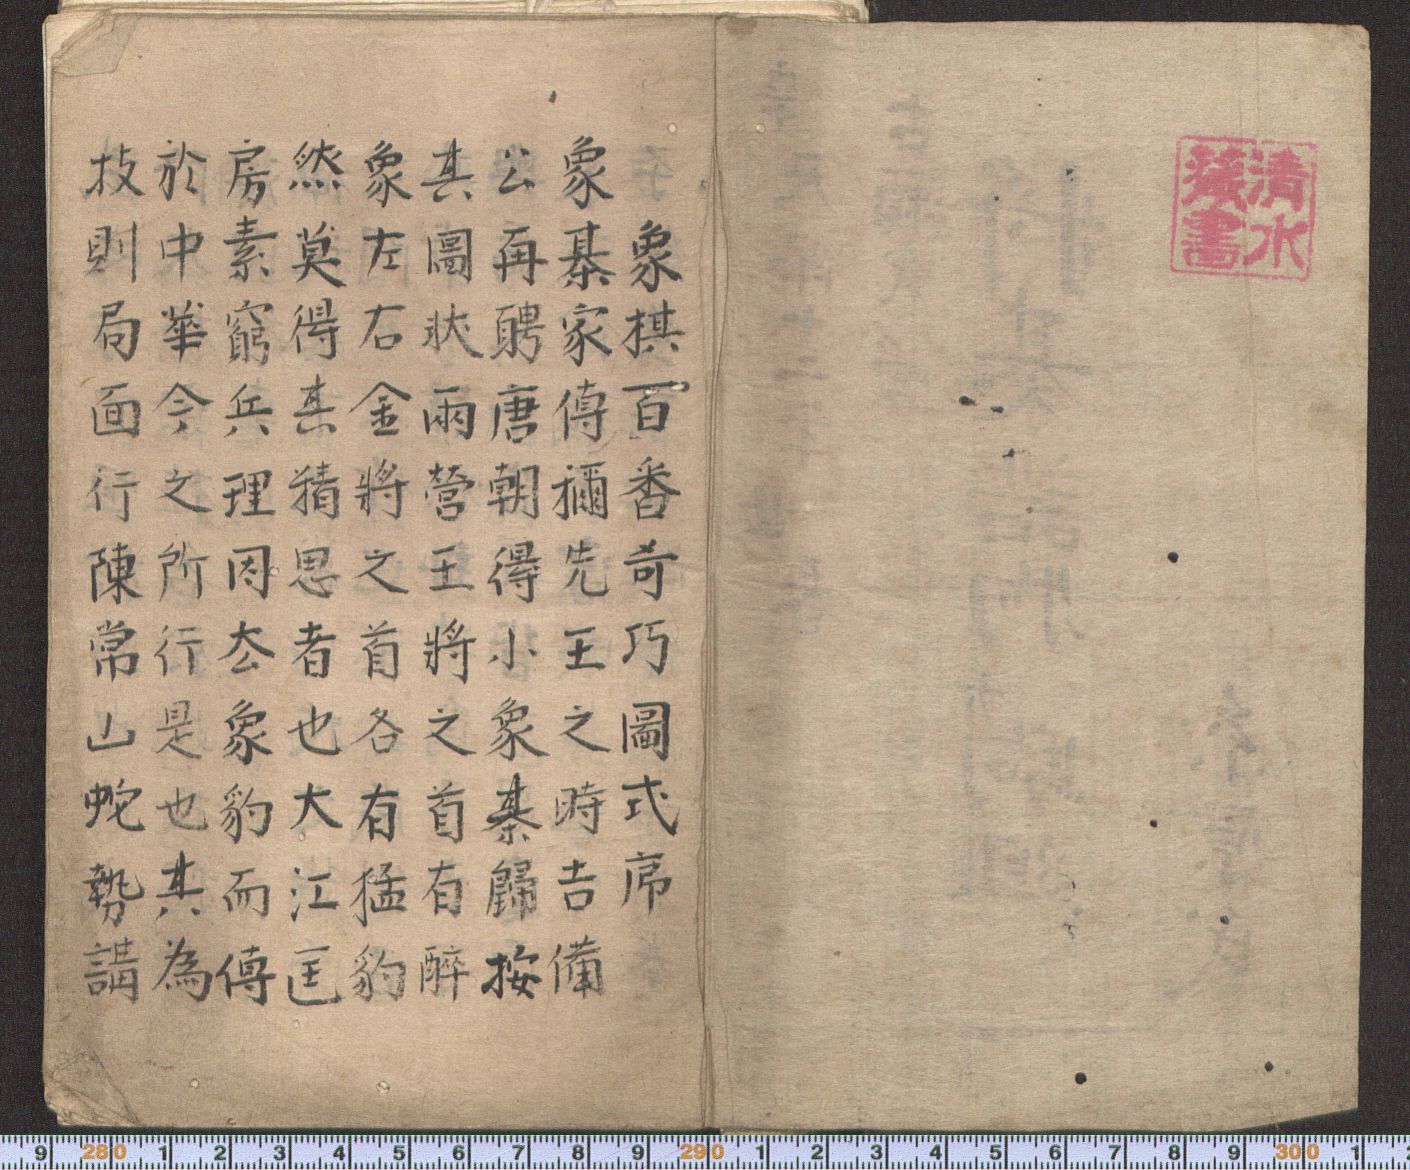 清水
藏書
象棋百番奇巧圖式序
象棊家傳彌先王之時吉備
公再聘唐朝得小象棊歸按
其圖狀兩營王將之首有醉
象左右金將之首各有猛豹
然莫得其猜思者也大江匡
房素窮兵理因厺象豹而傳
於中華今之所行是也其為
技則局面行陳常山蛇勢講
9 280 1 2 3 4 5 6 7 8 9 290 1 2 3 4 5 6 7 8 9 300 1 2